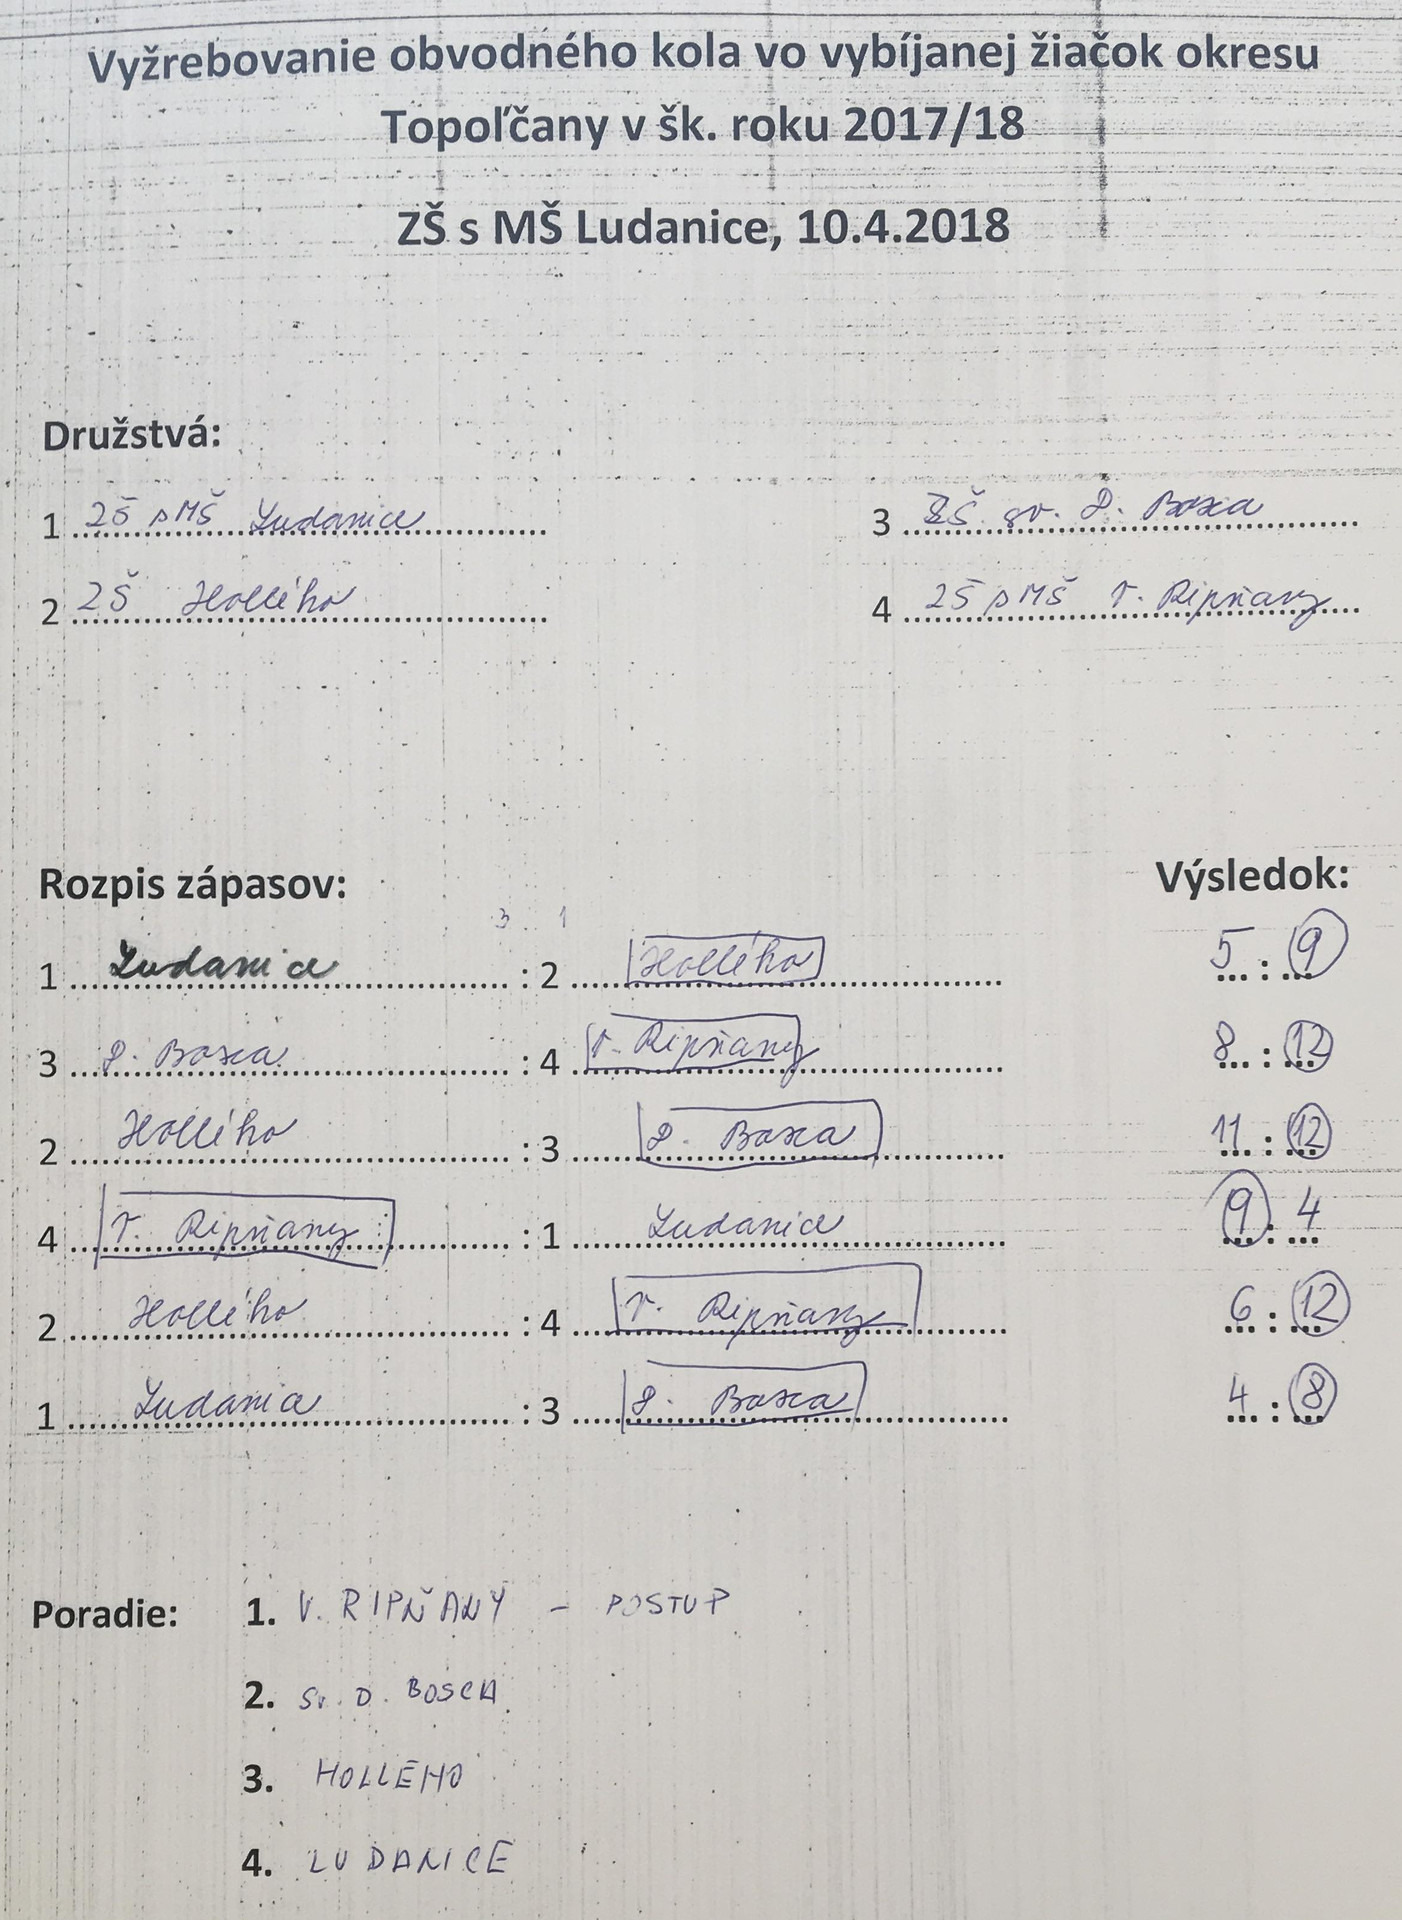 Vyžrebovanie obvodného kola vo vybíjanej žiačok okresu
Topoľčany v šk. roku 2017/18
ZŠ s MŠ Ludanice, 10.4.2018
Družstvá:
1 ZŠ s MŠ Ludanice 3 ZŠ sv. D. Bosca
2 ZŠ Hollého 4 ZŠ s MŠ V. Ripňany
Rozpis zápasov: Výsledok:
3 1
1 Ludanice : 2 Hollého 5 : 9
3 D. Bosca : 4 V. Ripňany 8 : 12
2 Hollého : 3 D. Bosca 11 : 12
4 V. Ripňany : 1 Ludanice 9 : 4
2 Hollého : 4 V. Ripňany 6 : 12
1 Ludanice : 3 D. Bosca 4 : 8
Poradie: 1. V. RIPŇANY – POSTUP
2. Sv. D. BOSCA
3. HOLLÉHO
4. LUDANICE